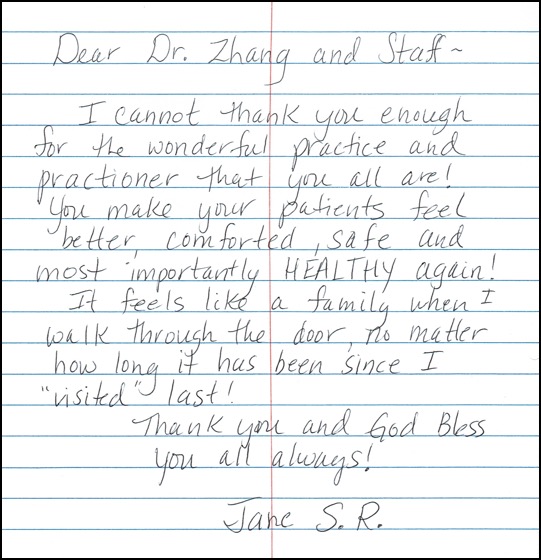 Dear Dr. Zhang and Staff ~
I cannot thank you enough
for the wonderful practice and
practioner that you all are!
You make your patients feel
better, comforted, safe and
most importantly HEALTHY again!
It feels like a family when I
walk through the door, no matter
how long it has been since I
"visited" last!
Thank you and God Bless
you all always!
Jane S. R.